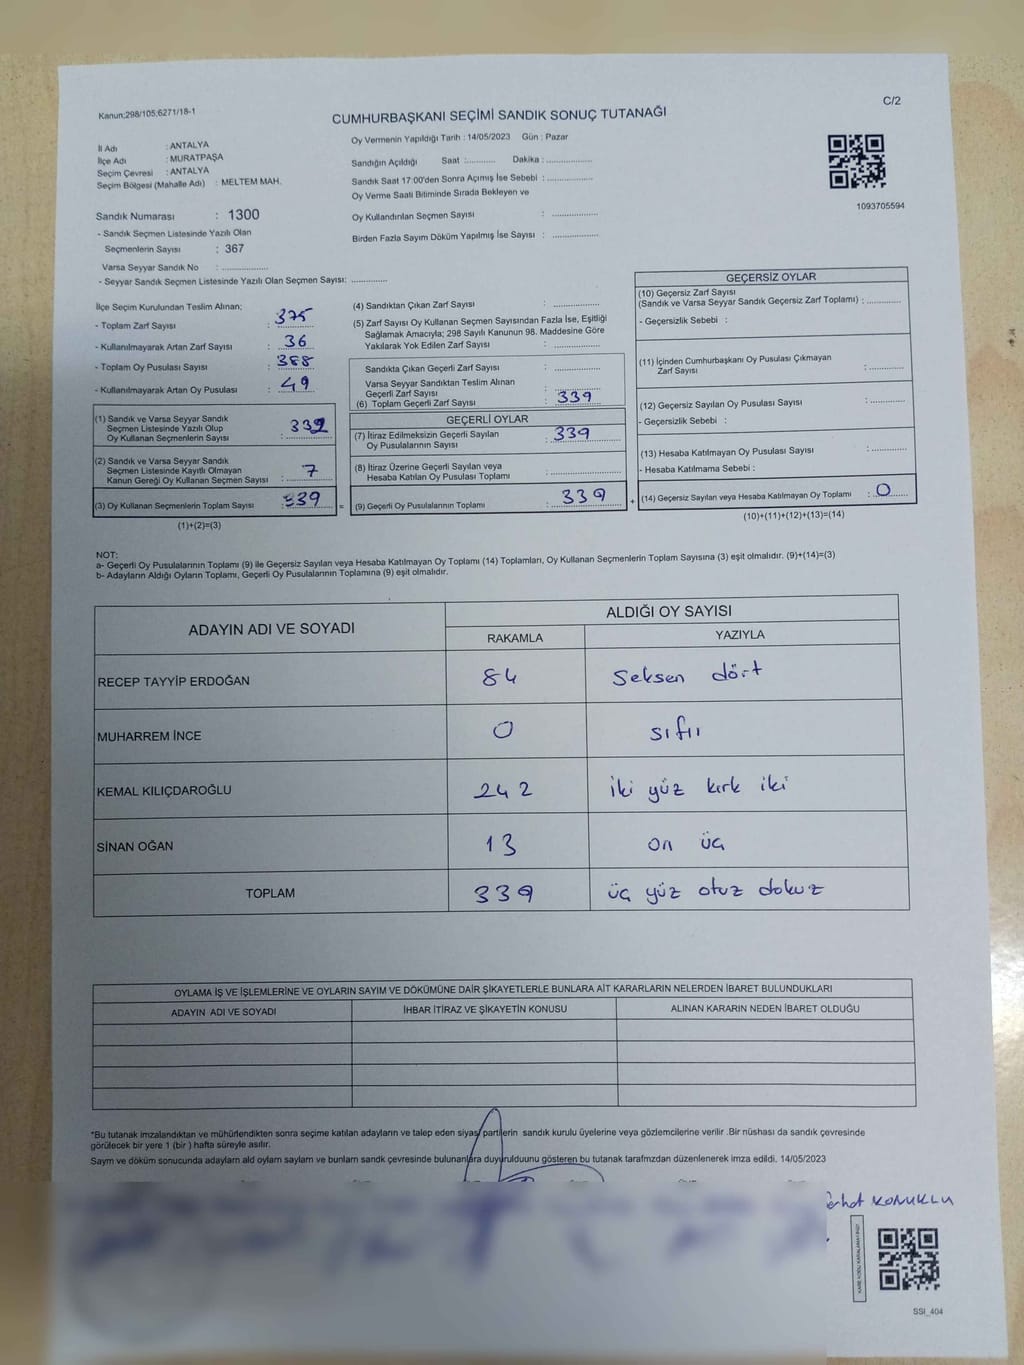 Kanun:298/105;6271/18-1
C/2
CUMHURBAŞKANI SEÇİMİ SANDIK SONUÇ TUTANAĞI
Oy Vermenin Yapıldığı Tarih : 14/05/2023 Gün : Pazar
İl Adı : ANTALYA
İlçe Adı : MURATPAŞA
Seçim Çevresi : ANTALYA
Seçim Bölgesi (Mahalle Adı) : MELTEM MAH.
Sandığın Açıldığı Saat :........... Dakika :................
Sandık Saat 17:00'den Sonra Açımış İse Sebebi :................
Oy Verme Saati Bitiminde Sırada Bekleyen ve
Oy Kullandırılan Seçmen Sayısı : ................
Birden Fazla Sayım Döküm Yapılmış İse Sayısı : ................
1093705594
Sandık Numarası : 1300
- Sandık Seçmen Listesinde Yazılı Olan
Seçmenlerin Sayısı : 367
Varsa Seyyar Sandık No : ................
- Seyyar Sandık Seçmen Listesinde Yazılı Olan Seçmen Sayısı: ............
İlçe Seçim Kurulundan Teslim Alınan;
- Toplam Zarf Sayısı : 375
- Kullanılmayarak Artan Zarf Sayısı : 36
- Toplam Oy Pusulası Sayısı : 388
- Kullanılmayarak Artan Oy Pusulası : 49
(1) Sandık ve Varsa Seyyar Sandık
Seçmen Listesinde Yazılı Olup
Oy Kullanan Seçmenlerin Sayısı : 332
(2) Sandık ve Varsa Seyyar Sandık
Seçmen Listesinde Kayıtlı Olmayan
Kanun Gereği Oy Kullanan Seçmen Sayısı : 7
(3) Oy Kullanan Seçmenlerin Toplam Sayısı : 339
(1)+(2)=(3)
(4) Sandıktan Çıkan Zarf Sayısı : ................
(5) Zarf Sayısı Oy Kullanan Seçmen Sayısından Fazla İse, Eşitliği
Sağlamak Amacıyla; 298 Sayılı Kanunun 98. Maddesine Göre
Yakılarak Yok Edilen Zarf Sayısı : ................
Sandıkta Çıkan Geçerli Zarf Sayısı : ................
Varsa Seyyar Sandıktan Teslim Alınan
Geçerli Zarf Sayısı : ................
(6) Toplam Geçerli Zarf Sayısı : 339
GEÇERLİ OYLAR
(7) İtiraz Edilmeksizin Geçerli Sayılan
Oy Pusulalarının Sayısı : 339
(8) İtiraz Üzerine Geçerli Sayılan veya
Hesaba Katılan Oy Pusulası Toplamı : ................
= (9) Geçerli Oy Pusulalarının Toplamı : 339 +
GEÇERSİZ OYLAR
(10) Geçersiz Zarf Sayısı
(Sandık ve Varsa Seyyar Sandık Geçersiz Zarf Toplamı) : ............
- Geçersizlik Sebebi :
(11) İçinden Cumhurbaşkanı Oy Pusulası Çıkmayan
Zarf Sayısı : ............
(12) Geçersiz Sayılan Oy Pusulası Sayısı : ............
- Geçersizlik Sebebi :
(13) Hesaba Katılmayan Oy Pusulası Sayısı : ............
- Hesaba Katılmama Sebebi :
(14) Geçersiz Sayılan veya Hesaba Katılmayan Oy Toplamı : 0
(10)+(11)+(12)+(13)=(14)
NOT:
a- Geçerli Oy Pusulalarının Toplamı (9) ile Geçersiz Sayılan veya Hesaba Katılmayan Oy Toplamı (14) Toplamları, Oy Kullanan Seçmenlerin Toplam Sayısına (3) eşit olmalıdır. (9)+(14)=(3)
b- Adayların Aldığı Oyların Toplamı, Geçerli Oy Pusulalarının Toplamına (9) eşit olmalıdır.
ADAYIN ADI VE SOYADI ALDIĞI OY SAYISI
RAKAMLA YAZIYLA
RECEP TAYYİP ERDOĞAN 84 Seksen dört
MUHARREM İNCE 0 sıfır
KEMAL KILIÇDAROĞLU 242 iki yüz kırk iki
SİNAN OĞAN 13 on üç
TOPLAM 339 üç yüz otuz dokuz
OYLAMA İŞ VE İŞLEMLERİNE VE OYLARIN SAYIM VE DÖKÜMÜNE DAİR ŞİKAYETLERLE BUNLARA AİT KARARLARIN NELERDEN İBARET BULUNDUKLARI
ADAYIN ADI VE SOYADI İHBAR İTİRAZ VE ŞİKAYETİN KONUSU ALINAN KARARIN NEDEN İBARET OLDUĞU
*Bu tutanak imzalandıktan ve mühürlendikten sonra seçime katılan adayların ve talep eden siyasi partilerin sandık kurulu üyelerine veya gözlemcilerine verilir .Bir nüshası da sandık çevresinde
görülecek bir yere 1 (bir ) hafta süreyle asılır.
Sayım ve döküm sonucunda adayların ald oyların sayları ve bunların sandk çevresinde bulunanlara duyurulduunu gösteren bu tutanak tarafmzdan düzenlenerek imza edildi. 14/05/2023
KONUKLU
SSI_404